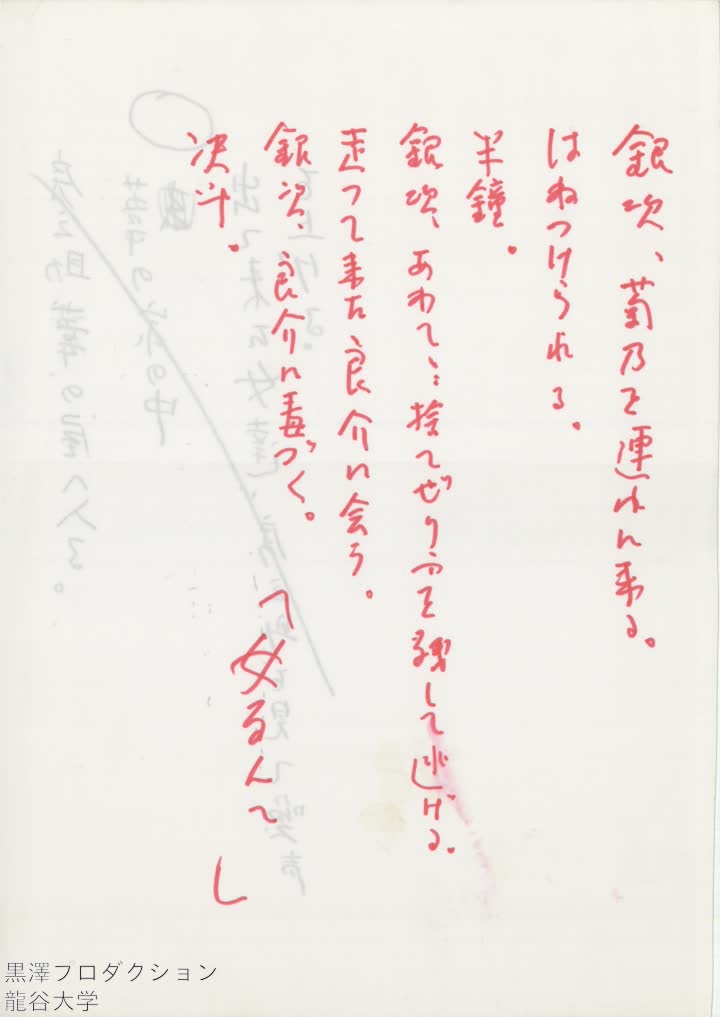 銀次、菊乃を連れに来る。
はねつけられる。
半鐘。
銀次、あわてゝ捨てぜりふを残して逃げる。
走って来た良介に会う。
銀次、良介に毒づく。
決斗。
黒澤プロダクション
龍谷大学